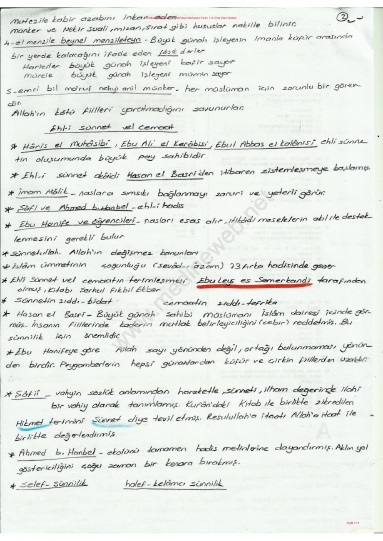 Mutezile kabir azabını inkar eden
münker ve Nekir suali, mizan, sırat gibi hususlar nakille bilinir. 2
4- el menzile beynel menzileteyn - Büyük günah işleyenin imanla küfür arasında
bir yerde kalacağını ifade eden fasık derler
Hariciler büyük günah işleyeni kafir sayar
mürcie büyük günah işleyeni mümin sayar
5- emri bil maruf nehyi anil münker - her müslüman için sorumlu bir görev-
dir.
Allah'ın kötü fiilleri yaratmadığını savunurlar.
Ehl-i sünnet vel cemaat
* Hâris el Muhâsibî, Ebu Ali el Kerâbisi, Ebul Abbas el kalânisi ehli sünne-
tin oluşumunda büyük pay sahibidir
* Ehl-i sünnet akidesi Hasan el Basri'den itibaren sistemleşmeye başlamış.
* İmam Mâlik - naslara sımsıkı bağlanmayı zaruri ve yeterli görür.
* Şâfi ve Ahmed b. Hanbel - ehli hadis
* Ebu Hanife ve öğrencileri - nasları esas alır, itikâdi meselelerin akıl ile destek-
lenmesini gerekli bulur
* sünnetullah. Allah'ın değişmez kanunları
* İslâm ümmetinin çoğunluğu (sevâd-ı âzam) 73 fırka hadisinde geçer
* Ehli sünnet vel cemaatin terimleşmesi Ebu Leys es Semerkandi tarafından
olmuş, kitabı Şerhul Fıkhil Ekber
* Sünnetin zıddı - bidat cemaatin zıddı - tefrika
* Hasan el Basri - Büyük günah sahibi müslümanı İslâm dairesi içinde gör-
müş. İnsanın fiillerinde kaderin mutlak belirleyiciliğini (cebr) reddetmiş. Bu
sünnilik için önemlidir
* Ebu Hanifeye göre Allah sayı yönünden değil, ortağı bulunmaması yönün-
den birdir. Peygamberlerin hepsi günahlardan küfür ve çirkin fiillerden uzaktır.
* Şâfii - vahyin sözlük anlamından hareketle, sünneti, ilham değerinde ilahi
bir vahiy olarak tanımlamış. Kur'an'daki Kitab ile birlikte zikredilen
Hikmet terimini Sünnet diye tevil etmiş. Resulullah'a itaati Allah'a itaat ile
birlikte değerlendirmiş
* Ahmed b. Hanbel - ekolünü tamamen hadis metinlerine dayandırmış. Aklın yol
göstericiliğini çoğu zaman bir kenara bırakmış.
* Selef - sünnilik halef - kelâmcı sünnilik